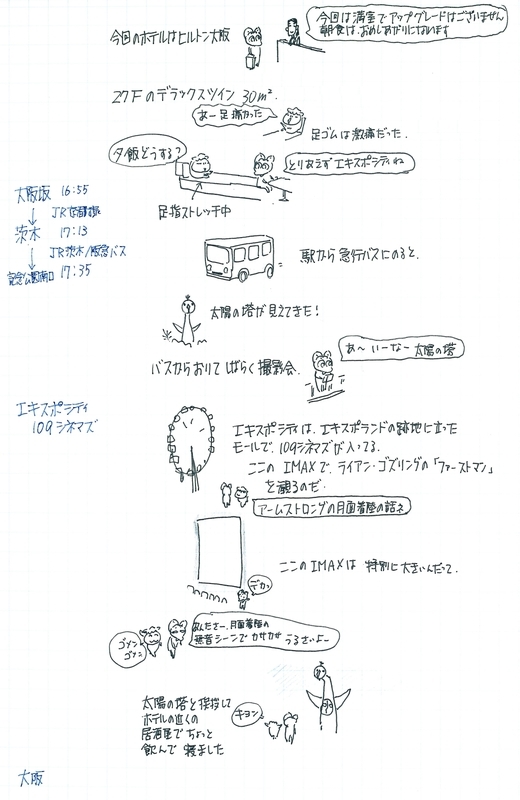 今回のホテルはヒルトン大阪
今回は満室でアップグレードはございません
朝食は、おめしあがりになれます
27Fのデラックスツイン 30m².
あー足痛かった
足ゴムは激痛だった.
夕飯どうする?
とりあえずエキスポシティね
足指ストレッチ中
大阪 16:55
↓
茨木 17:13
↓ JR茨木/阪急バス
17:35
駅から急行バスにのると.
太陽の塔が見えてきた!
バスからおりてしばらく撮影会.
あ〜いーなー太陽の塔
エキスポシティ
109シネマズ
エキスポシティは、エキスポランドの跡地に立った
モールで、109シネマズが入ってる.
ここのIMAXで、ライアン・ゴズリングの「ファーストマン」
を観るのだ.
アームストロングの月面着陸の話ネ
ここのIMAXは特別に大きいんだって.
デカッ
あんたさー、月面着陸の
無音シーンでカサカサ
うるさいよー
ゴメン
ゴメン
太陽の塔と挨拶して
ホテルの近くの
居酒屋でちょっと
飲んで寝ました
キョン
大阪